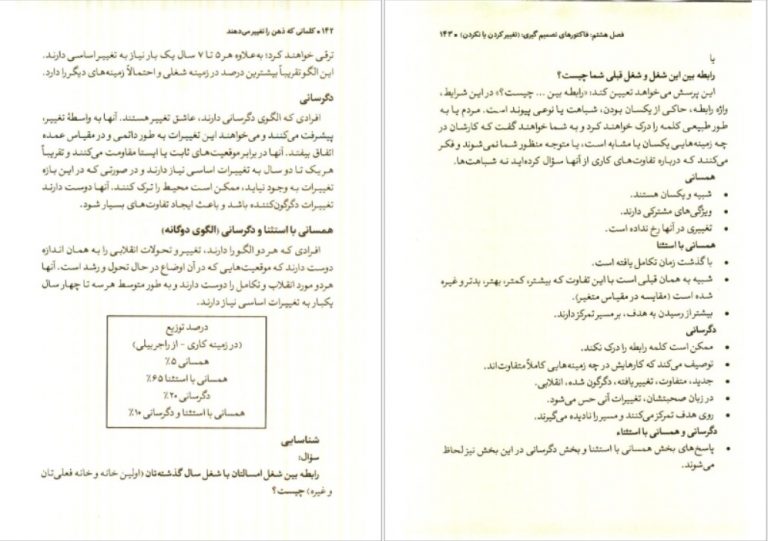 ۱۴۲ • کلماتی که ذهن را تغییر می‌دهند
ترقی خواهند کرد؛ به‌علاوه هر ۵ تا ۷ سال یک بار نیاز به تغییر اساسی دارند.
این الگو تقریباً بیشترین درصد در زمینه شغلی و احتمالاً زمینه‌های دیگر را دارد.
دگرسانی
افرادی که الگوی دگرسانی دارند، عاشق تغییر هستند. آنها به واسطهٔ تغییر،
پیشرفت می‌کنند و می‌خواهند این تغییرات به طور دائمی و در مقیاس عمده
اتفاق بیفتد. آنها در برابر موقعیت‌های ثابت یا ایستا مقاومت می‌کنند و تقریباً
هر یک تا دو سال به تغییرات اساسی نیاز دارند و در صورتی که در این بازه
تغییرات به وجود نیاید، ممکن است محیط را ترک کنند. آنها دوست دارند
تغییرات دگرگون‌کننده باشد و باعث ایجاد تفاوت‌های بسیار شود.
همسانی با استثنا و دگرسانی (الگوی دوگانه)
افرادی که هر دو الگو را دارند، تغییر و تحولات انقلابی را به همان اندازه
دوست دارند که موقعیت‌هایی که در آن اوضاع در حال تحول و رشد است. آنها
هر دو مورد انقلاب و تکامل را دوست دارند و به طور متوسط هر سه تا چهار سال
یکبار به تغییرات اساسی نیاز دارند.
درصد توزیع
(در زمینه کاری - از راجر بیلی)
همسانی ۵٪
همسانی با استثنا ۶۵٪
دگرسانی ۲۰٪
همسانی با استثنا و دگرسانی ۱۰٪
شناسایی
سؤال:
رابطه بین شغل امسالتان با شغل سال گذشته‌تان (اولین خانه و خانه فعلی‌تان
و غیره) چیست؟
فصل هشتم: فاکتورهای تصمیم گیری: (تغییر کردن یا نکردن) • ۱۴۳
یا
رابطه بین این شغل و شغل قبلی شما چیست؟
این پرسش می‌خواهد تعیین کند: «رابطه بین ... چیست؟» در این شرایط،
واژه رابطه، حاکی از یکسان بودن، شباهت یا نوعی پیوند است. مردم یا به
طور طبیعی کلمه را درک خواهند کرد و به شما خواهند گفت که کارشان در
چه زمینه‌هایی یکسان یا مشابه است، یا متوجه منظور شما نمی‌شوند و فکر
می‌کنند که درباره تفاوت‌های کاری از آنها سؤال کرده‌اید نه شباهت‌ها.
همسانی
• شبیه و یکسان هستند.
• ویژگی‌های مشترکی دارند.
• تغییری در آنها رخ نداده است.
همسانی با استثنا
• با گذشت زمان تکامل یافته است.
• شبیه به همان قبلی است با این تفاوت که بیشتر، کمتر، بهتر، بدتر و غیره
شده است (مقایسه در مقیاس متغیر).
• بیشتر از رسیدن به هدف، بر مسیر تمرکز دارند.
دگرسانی
• ممکن است کلمه رابطه را درک نکند.
• توصیف می‌کند که کارهایش در چه زمینه‌هایی کاملاً متفاوت‌اند.
• جدید، متفاوت، تغییر یافته، دگرگون شده، انقلابی.
• در زبان صحبتشان، تغییرات آنی حس می‌شود.
• روی هدف تمرکز می‌کنند و مسیر را نادیده می‌گیرند.
دگرسانی و همسانی با استثناء
• پاسخ‌های بخش همسانی با استثنا و بخش دگرسانی در این بخش نیز لحاظ
می‌شوند.